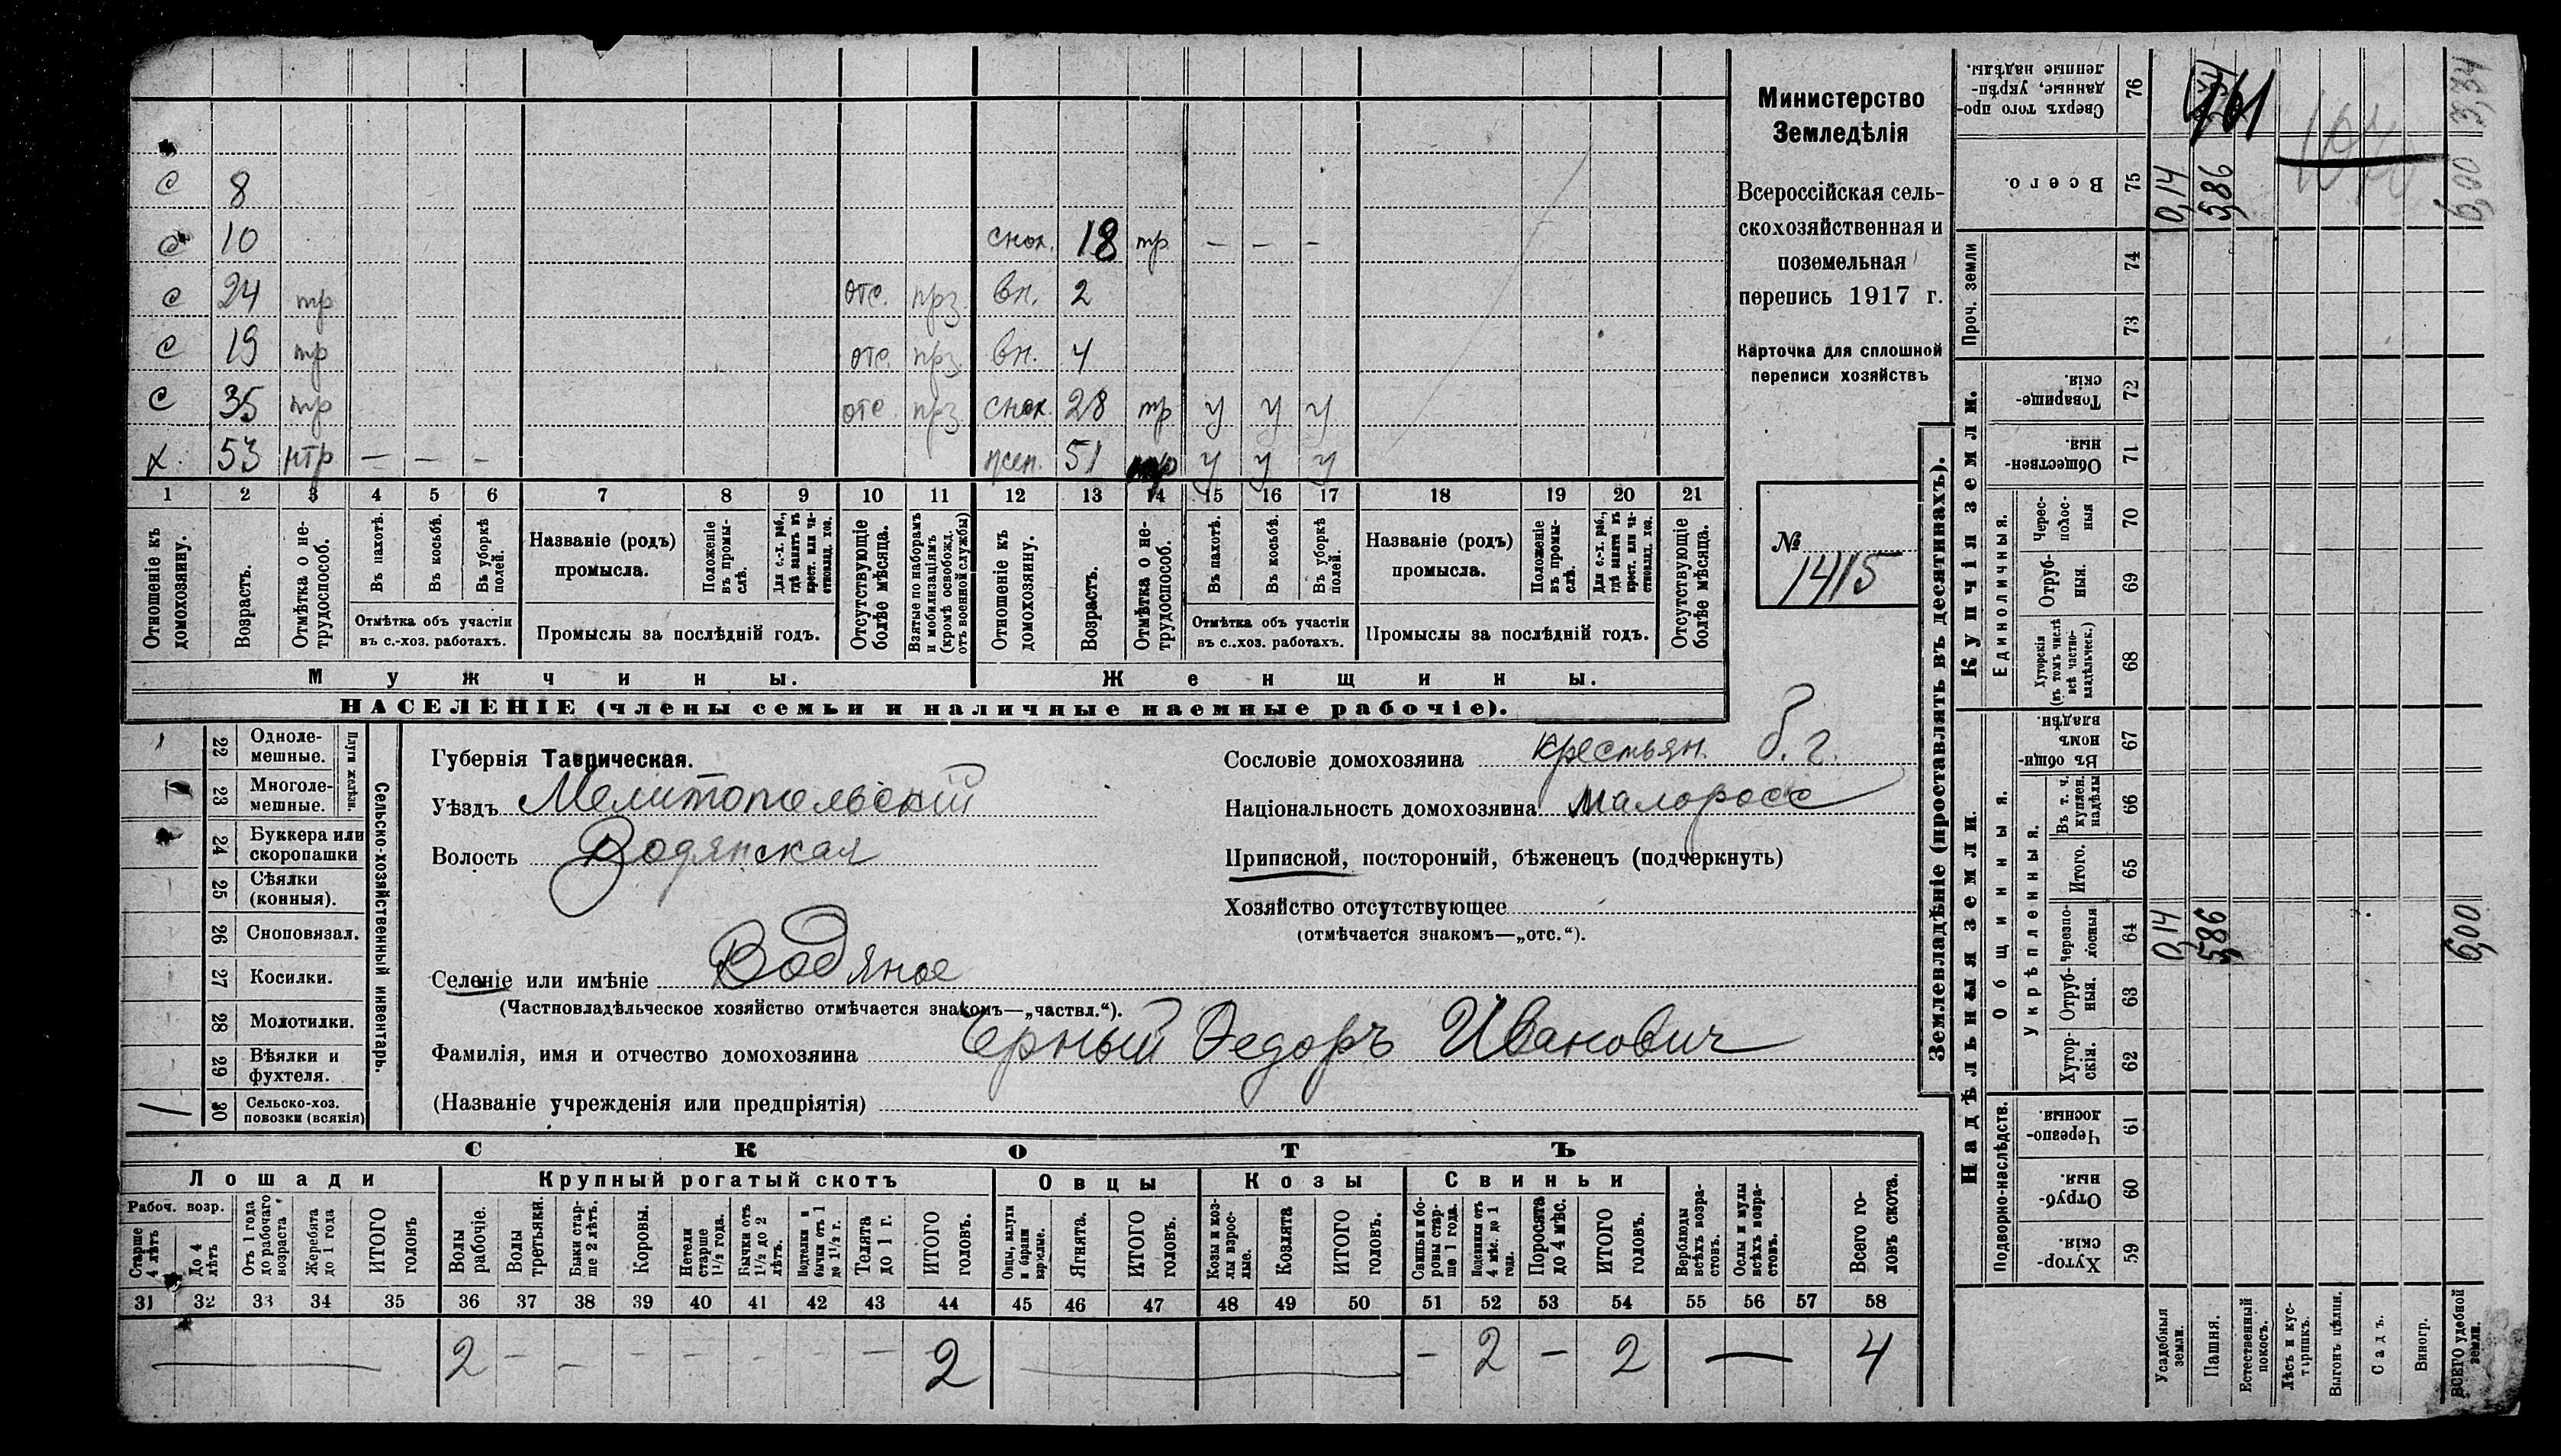 Министерство
Земледѣлія
Всероссійская сель-
скохозяйственная и
поземельная
перепись 1917 г.
Карточка для сплошной
переписи хозяйствъ
№
1415
с 8
с 10 снох. 18 тр - - -
с 24 тр отс. прз. вн. 2
с 19 тр отс. прз. вн. 4
с 35 тр отс. прз. снох. 28 тр у у у
х. 53 нтр - - - 51 у у у
1 2 3 4 5 6 7 8 9 10 11 12 13 14 15 16 17 18 19 20 21
Отношеніе къ домохозяину.
Возрастъ.
Отмѣтка о не-трудоспособ.
Въ пахотѣ.
Въ косьбѣ.
Въ уборкѣ полей.
Отмѣтка объ участіи
въ с.-хоз. работахъ.
Названіе (родъ)
промысла.
Положеніе въ промы-слѣ.
Для с.-х. раб., гдѣ занятъ въ крест. или ча-стновлад. хоз.
Промыслы за послѣдній годъ.
Отсутствующіе болѣе мѣсяца.
Взятые по наборамъ и мобилизаціямъ (кромѣ освобожд. отъ военной службы)
Отношеніе къ домохозяину.
Возрастъ.
Отмѣтка о не-трудоспособ.
Въ пахотѣ.
Въ косьбѣ.
Въ уборкѣ полей.
Отмѣтка объ участіи
въ с.-хоз. работахъ.
Названіе (родъ)
промысла.
Положеніе въ промы-слѣ.
Для с.-х. раб., гдѣ занята въ крест. или ча-стновлад. хоз.
Промыслы за послѣдній годъ.
Отсутствующіе болѣе мѣсяца.
Мужчины. Женщины.
НАСЕЛЕНІЕ (члены семьи и наличные наемные рабочіе).
22 Одноле-мешные.
23 Многоле-мешные.
Плуги желѣзн.
24 Буккера или скоропашки
25 Сѣялки (конныя).
26 Сноповязал.
27 Косилки.
28 Молотилки.
29 Вѣялки и фухтеля.
30 Сельско-хоз. повозки (всякія)
Сельско-хозяйственный инвентарь.
Губернія Таврическая.
Уѣздъ Мелитопольскій
Волость Водянская
Селеніе или имѣніе Водяное
(Частновладѣльческое хозяйство отмѣчается знакомъ—„частвл.“).
Фамилія, имя и отчество домохозяина Черный Федоръ Иванович
(Названіе учрежденія или предпріятія)
Сословіе домохозяина крестьян. б. г.
Національность домохозяина малоросс
Приписной, посторонній, бѣженецъ (подчеркнуть)
Хозяйство отсутствующее
(отмѣчается знакомъ—„отс.“).
СКОТЪ
Лошади Крупный рогатый скотъ Овцы Козы Свиньи
Рабоч. возр.
Старше 4 лѣтъ
До 4 лѣтъ
Отъ 1 года до рабочаго возраста
Жеребята до 1 года
ИТОГО головъ
Волы рабочіе.
Волы третьяки.
Быки стар-ше 2 лѣтъ.
Коровы.
Нетели старше 1½ года.
Бычки отъ 1½ до 2 лѣтъ.
Подтелки и бычки отъ 1 до 1½ г.
Телята до 1 г.
ИТОГО головъ.
Овцы, валухи и бараны взрослые.
Ягнята.
ИТОГО головъ.
Козы и коз-лы взрос-лые.
Козлята
ИТОГО головъ.
Свиньи и бо-ровы стар-ше 1 года.
Подсвинки отъ 4 мѣс. до 1 года.
Поросята до 4 мѣс.
ИТОГО головъ.
Верблюды всѣхъ возра-стовъ.
Ослы и мулы всѣхъ возра-стовъ.
Всего го-ловъ скота.
31 32 33 34 35 36 37 38 39 40 41 42 43 44 45 46 47 48 49 50 51 52 53 54 55 56 57 58
2 - - - - - - - 2 - 2 - 2 — 4
Землевладѣніе (проставлять въ десятинахъ).
Надѣльныя земли. Купчія земли. Проч. земли
Подворно-наслѣдств.
Общинныя.
Укрѣпленныя.
Единоличныя.
Хутор-скія. 59
Отруб-ныя. 60
Черезпо-лосныя. 61
Хутор-скія. 62
Отруб-ныя. 63
Черезпо-лосныя 64
Итого. 65
Въ т. ч. куплен. надѣлы 66
Въ общи-номъ владѣн. 67
Хуторскія (въ томъ числѣ всѣ частно-владѣльческ.) 68
Отруб-ныя. 69
Черес-полос-ныя 70
Обществен-ныя. 71
Товарище-скія. 72
73
74
Всего. 75
Сверхъ того про-данные, укрѣп-ленные надѣлы. 76
Усадебныя земли. 0,14 0,14
Пашня. 5,86 5,86
Естественный покосъ.
Лѣсъ и кус-тарникъ.
Выгонъ цѣлин.
Садъ.
Виногр.
ВСЕГО удобной земли. 6,00 6,00 3,34